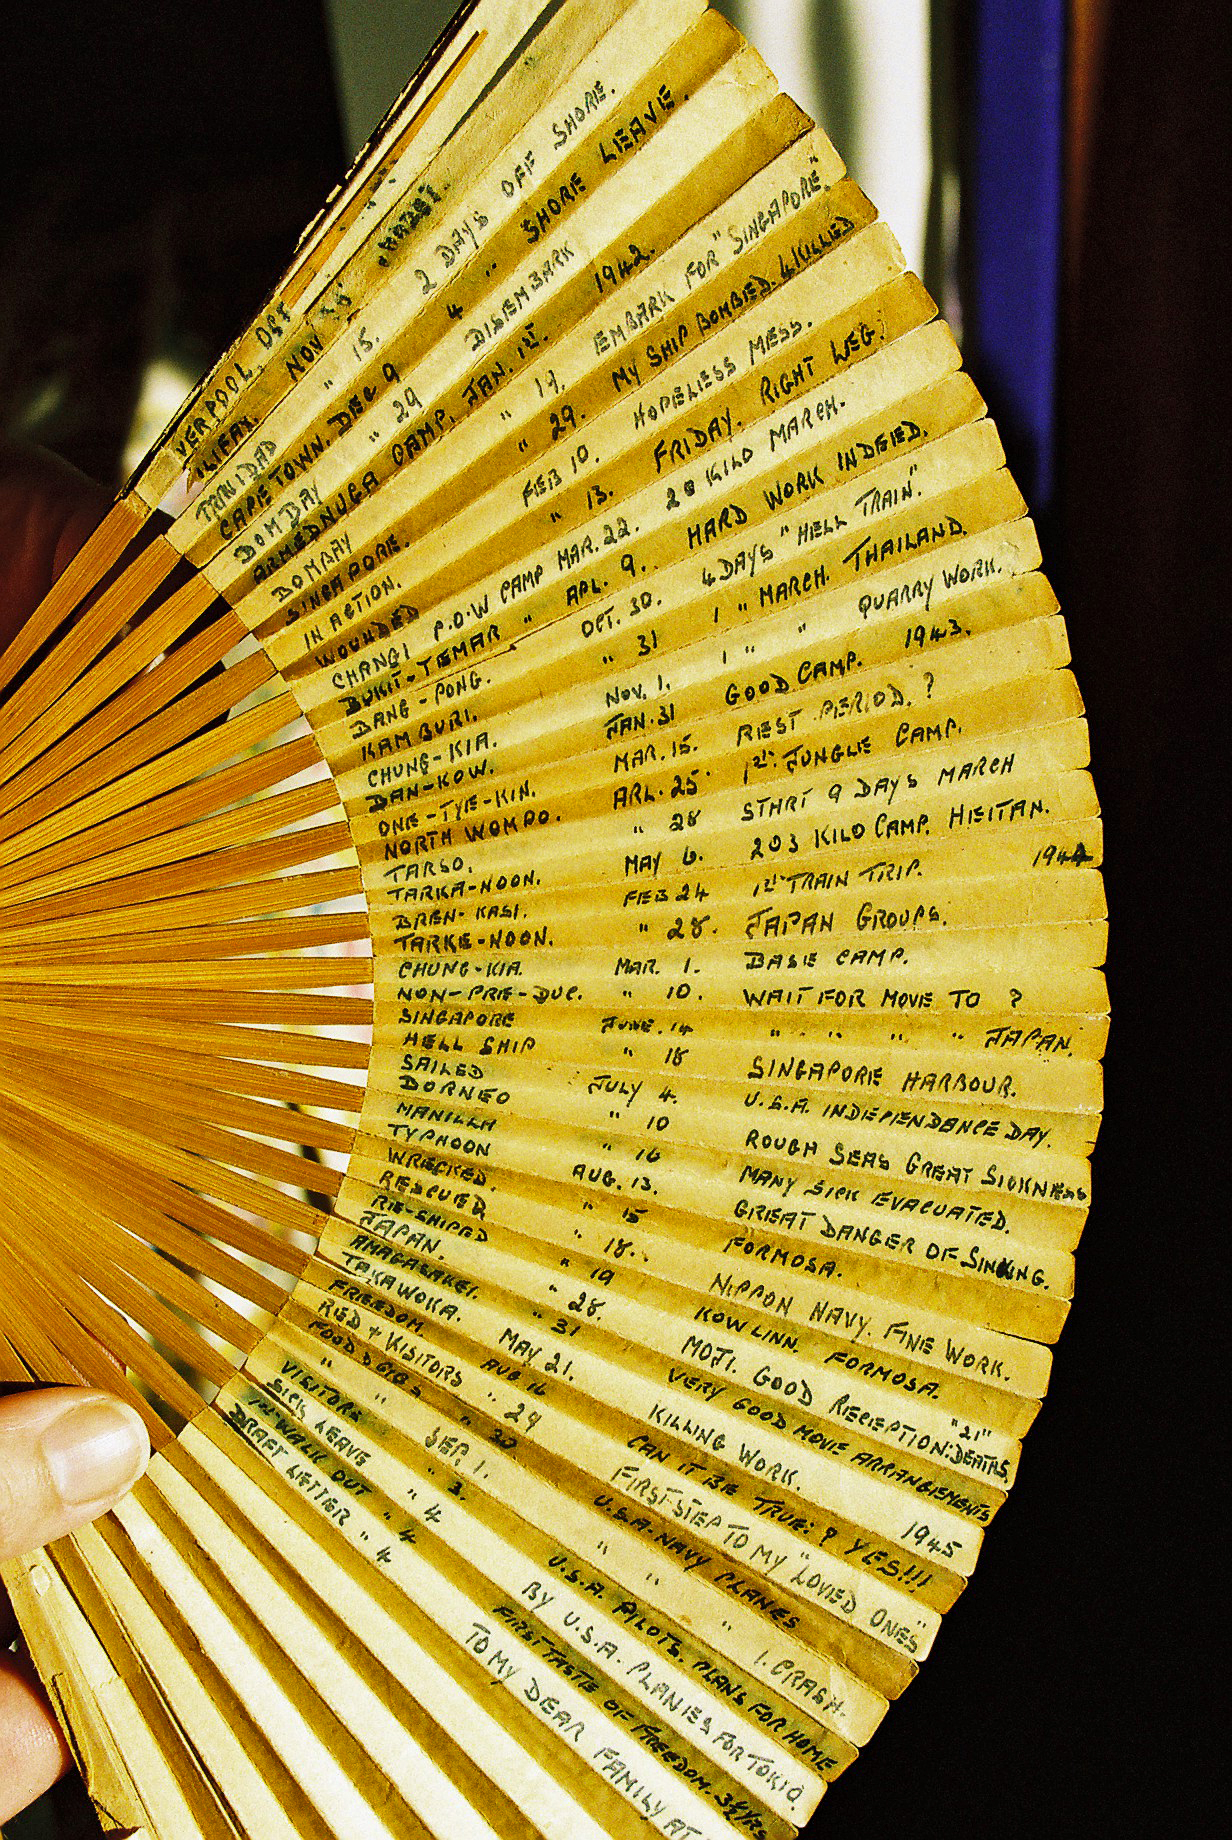 VERPOOL. OCT
LIFAX. NOV "3"
TRINIDAD " 15. 2 DAYS OFF SHORE.
CAPE TOWN. DEC 9 4 " SHORE LEAVE.
BOMBAY " 29 DISEMBARK
ARMEDNUGA CAMP. JAN. 1ST. 1942.
BOMBAY " 17. EMBARK FOR "SINGAPORE".
SINGAPORE. " 29. MY SHIP BOMBED. 4 KILLED
IN ACTION. FEB 10. HOPELESS MESS.
WOUNDED " 13. FRIDAY. RIGHT LEG.
CHANGI P.O.W CAMP MAR. 22. 20 KILO MARCH.
BUKIT-TEMAR " APL. 9. HARD WORK INDEED.
BANG-PONG. OCT. 30. 4 DAYS "HELL TRAIN".
KAMBURI. " 31 1 " MARCH. THAILAND.
CHUNG-KIA. NOV. 1. 1 " " QUARRY WORK.
BAN-KOW. JAN. 31 GOOD CAMP. 1943.
ONE-TYE-KIN. MAR. 15. REST PERIOD. ?
NORTH WOMPO. ARL. 25. 1ST. JUNGLE CAMP.
TARSO. " 28 START 9 DAYS MARCH
TARKA-NOON. MAY 6. 203 KILO CAMP. HEITAN.
BREN-KASI. FEB 24 1ST TRAIN TRIP. 1944
TARKE-NOON. " 28. JAPAN GROUPS.
CHUNG-KIA. MAR. 1. BASE CAMP.
NON-PRE-DUC. " 10. WAIT FOR MOVE TO ?
SINGAPORE JUNE. 14 " " " " " JAPAN.
HELL SHIP " 18 SINGAPORE HARBOUR.
SAILED JULY 4. U.S.A. INDEPENDANCE DAY.
BORNEO " 10 ROUGH SEAS GREAT SICKNESS
MANILLA " 16 MANY SICK EVACUATED.
TYPHOON AUG. 13. GREAT DANGER OF SINKING.
WRECKED. " 15 FORMOSA.
RESCUED " 18. NIPPON NAVY. FINE WORK.
RE-SHIPED " 19 KOWLINN. FORMOSA.
JAPAN. " 28. MOJI. GOOD RECEPTION: DEATHS "21"
AMAGASAKEI. " 31 VERY GOOD MOVE ARRANGEMENTS
TAKAWOKA. MAY 21. KILLING WORK. 1945
FREEDOM. AUG 16 CAN IT BE TRUE: ? YES!!!
RED + VISITORS " 24 FIRST STEP TO MY "LOVED ONES"
FOOD D " 30 U.S.A. NAVY PLANES
" " SEP. 1. " " " 1. CRASH.
VISITORS " 3. U.S.A. PILOTS. PLANS FOR HOME
SICK LEAVE " 4 BY U.S.A. PLANES FOR TOKIO.
1ST WALK OUT " 4 FIRST TASTE OF FREEDOM. 3½ YRS
DRAFT LETTER " 4 TO MY DEAR FAMILY AT